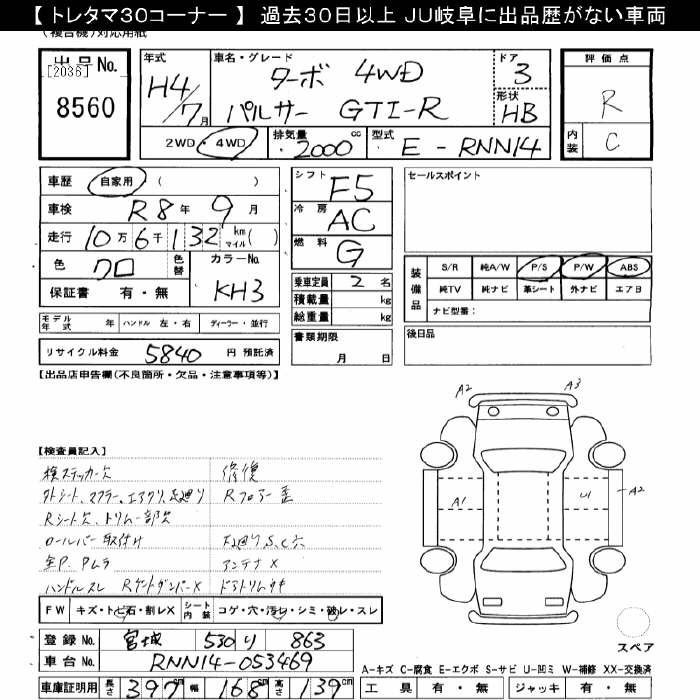 【 トレタマ30コーナー 】 過去30日以上 JU岐阜に出品歴がない車両
(複合機)対応用紙
出品No.
[2036]
8560
年式
H4/7月
車名・グレード
ターボ 4WD
パルサー GTI-R
ドア
3
形状
HB
評価点
R
内装
C
2WD・4WD
排気量
2000 cc
型式
E - RNN14
車歴 自家用 ( )
車検 R8年 9月
走行 10万6千132 km マイル( )
色 クロ
色替
カラーNo. KH3
保証書 有・無
シフト F5
冷房 AC
燃料 G
乗車定員 2名
積載量 kg
総重量 kg
書類期限
月 日
セールスポイント
装備品
S/R 純A/W P/S P/W ABS
純TV 純ナビ 革シート 外ナビ エアB
ナビ型番:
後日品
モデル年式 年 ハンドル 左・右 ディーラー・並行
リサイクル料金 5840 円 預託済
【出品店申告欄(不良箇所・欠品・注意事項等)】
【検査員記入】
検ステッカー欠 修復
Rフロアー歪
Rシート欠、トリム一部欠
ロールバー取付け 下廻りS、C穴
全P、Pムラ アンテナX
ハンドルスレ RゲートダンパーX ドアトリムキ
FW キズ・トビ石・割レX シート内装 コゲ・穴・汚レ・シミ・破レ・スレ
登録No. 宮城 530 り 863
車台No. RNN14-053469
車庫証明用 長さ 397cm 幅 168cm 高さ 139cm
A2
A3
A1
U1
A2
スペア
A-キズ C-腐食 E-エクボ S-サビ U-凹ミ W-補修 XX-交換済
工具 有・無 ジャッキ 有・無